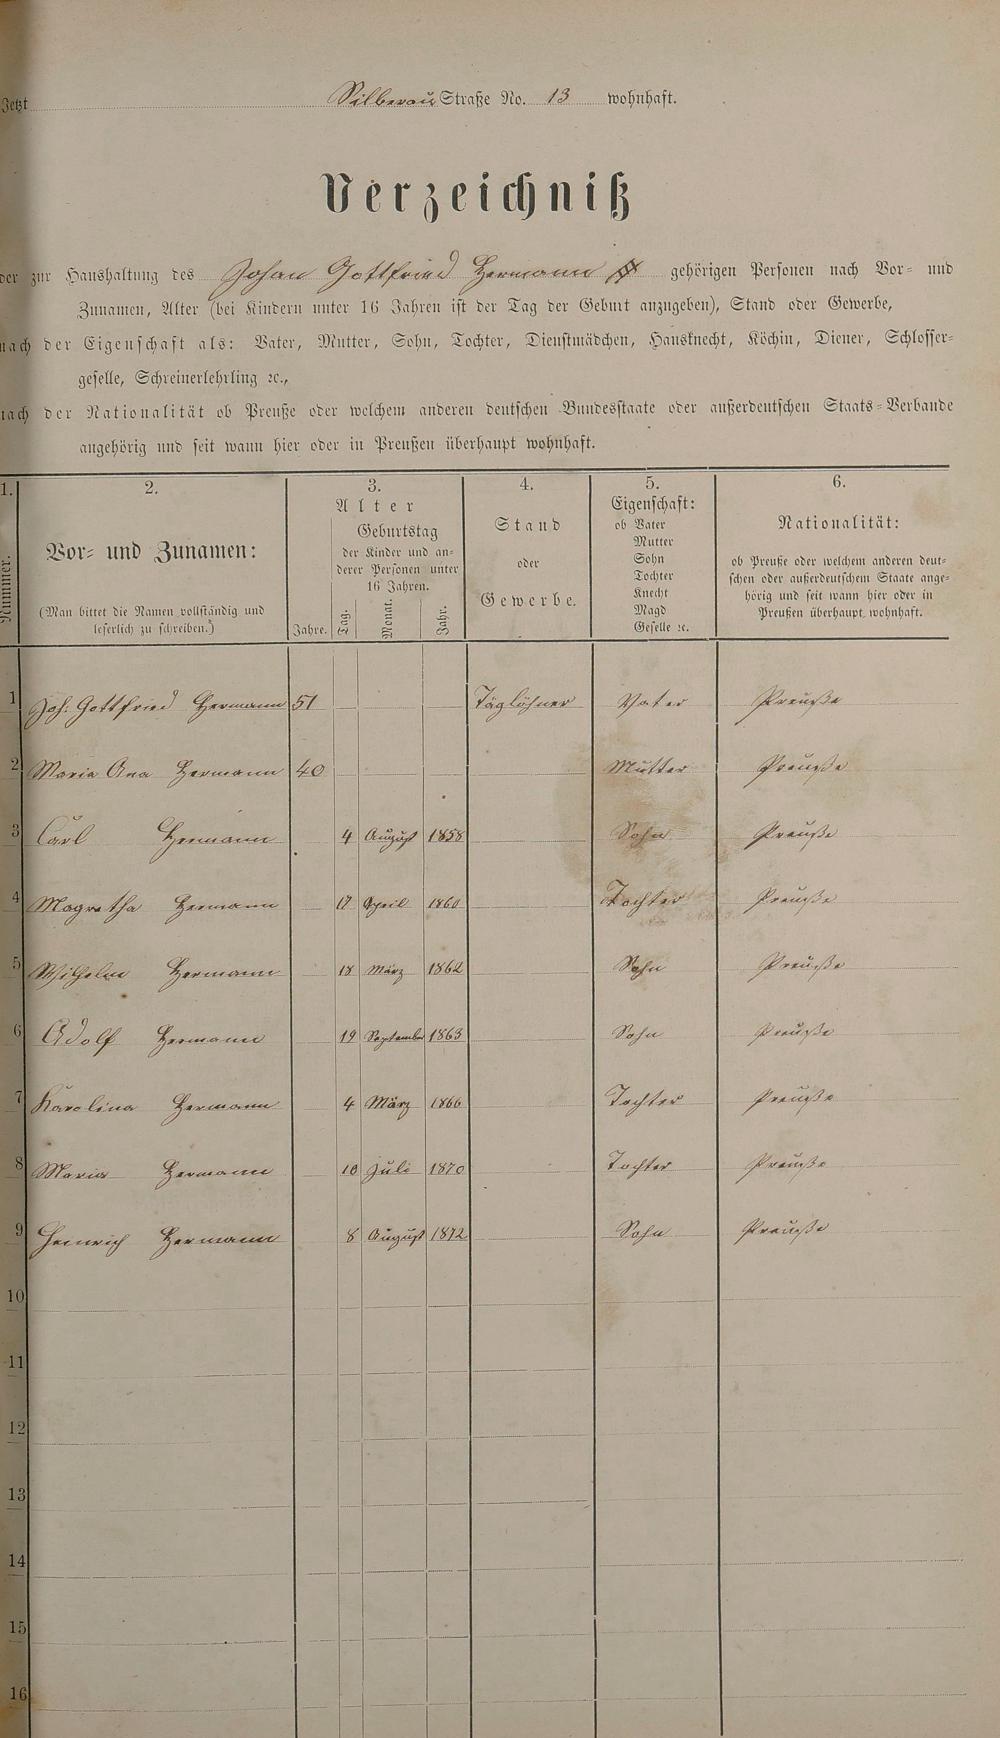 Jetzt Silberau Straße No. 13 wohnhaft.
Verzeichniß
der zur Haushaltung des Johan Gottfried Hermann gehörigen Personen nach Vor- und
Zunamen, Alter (bei Kindern unter 16 Jahren ist der Tag der Geburt anzugeben), Stand oder Gewerbe,
nach der Eigenschaft als: Vater, Mutter, Sohn, Tochter, Dienstmädchen, Hausknecht, Köchin, Diener, Schlosser-
geselle, Schreinerlehrling ꝛc.,
nach der Nationalität ob Preuße oder welchem anderen deutschen Bundesstaate oder außerdeutschen Staats-Verbande
angehörig und seit wann hier oder in Preußen überhaupt wohnhaft.
1. 2. 3. 4. 5. 6.
Nummer.
Vor- und Zunamen:
(Man bittet die Namen vollständig und
leserlich zu schreiben.)
Alter
Jahre.
Geburtstag
der Kinder und an-
derer Personen unter
16 Jahren.
Tag. Monat. Jahr.
Stand
oder
Gewerbe.
Eigenschaft:
ob Vater
Mutter
Sohn
Tochter
Knecht
Magd
Geselle ꝛc.
Nationalität:
ob Preuße oder welchem anderen deut-
schen oder außerdeutschem Staate ange-
hörig und seit wann hier oder in
Preußen überhaupt wohnhaft.
1 Joh: Gottfried Hermann 51 Täglöhner Vater Preuße
2 Maria Ana Hermann 40 Mutter Preuße
3 Carl Hermann 4 August 1858 Sohn Preuße
4 Magretha Hermann 17 April 1860 Tochter Preuße
5 Wilhelm Hermann 18 März 1862 Sohn Preuße
6 Adolf Hermann 19 September 1863 Sohn Preuße
7 Karolina Hermann 4 März 1866 Tochter Preuße
8 Maria Hermann 10 Juli 1870 Tochter Preuße
9 Heinrich Hermann 8 August 1872 Sohn Preuße
10
11
12
13
14
15
16